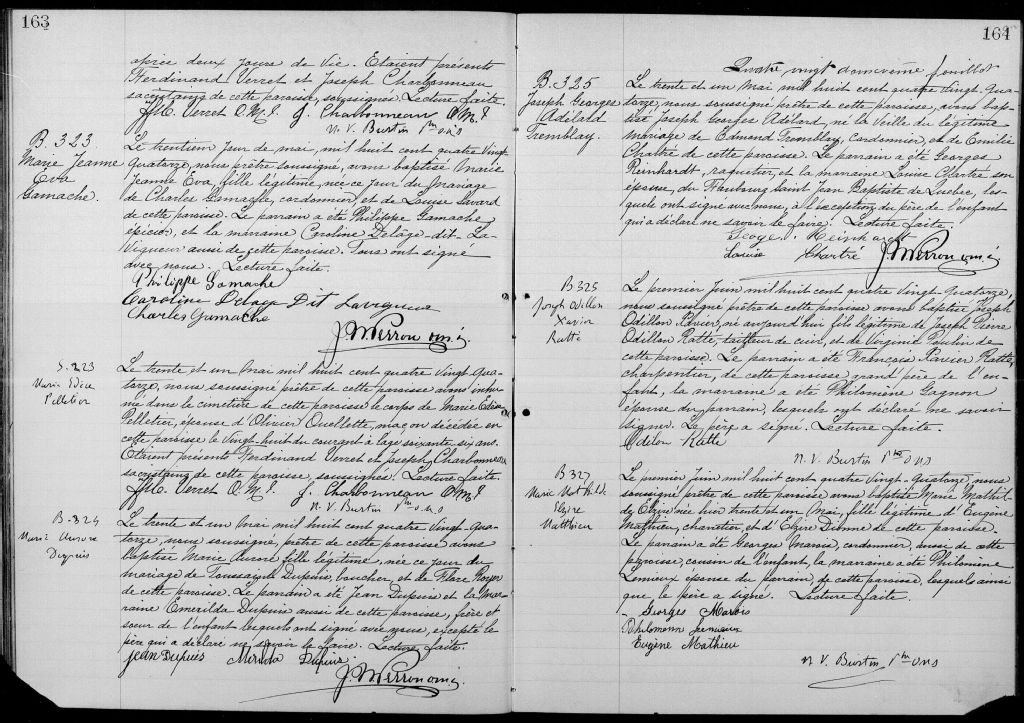 163
après deux jours de vie. Étaient présents
Ferdinand Verret et Joseph Charbonneau
sacristains de cette paroisse, soussignés. Lecture faite.
Verret O.M.I. J. Charbonneau O.M.I
N. V. Burtin Ptre O.M.I
B. 323
Marie Jeanne
Eva
Gamache.
Le trentième jour de mai, mil huit cent quatre vingt
quatorze, nous prêtre soussigné, avons baptisé Marie
Jeanne Eva, fille légitime, née ce jour du mariage
de Charles Gamache, cordonnier, et de Louise Simard
de cette paroisse. Le parrain a été Philippe Gamache
épicier, et la marraine Caroline Delage-dit-La-
Vigueur aussi de cette paroisse. Tous ont signé
avec nous. Lecture faite.
Philippe Gamache
Caroline Delage Dit Lavigueur
Charles Gamache
J. W Perron o.m.i.
S. 223
Marie
Pelletier
Le trente et un Mai mil huit cent quatre vingt qua-
torze, nous soussigné prêtre de cette paroisse avons inhu-
mé dans le cimetière de cette paroisse le corps de Marie
Pelletier, épouse d'Olivier Ouellette, maçon décédée en
cette paroisse le vingt-huit du courant à l'âge soixante-six ans.
Étaient présents Ferdinand Verret et Joseph Charbonneau
sacristains de cette paroisse, soussignés. Lecture faite.
Verret O.M.I. J. Charbonneau O.M.I
N. V. Burtin Ptre O.M.I
B-324
Marie Aurore
Dupuis
Le trente et un Mai mil huit cent quatre vingt-qua-
torze, nous soussigné, prêtre de cette paroisse avons
baptisé Marie Aurore fille légitime, née ce jour du
mariage de Toussaint Dupuis, boucher, et de Flore
de cette paroisse. Le parrain a été Jean Dupuis et la mar-
raine Emerilda Dupuis aussi de cette paroisse, frère et
soeur de l'enfant lesquels ont signé avec nous, excepté le
père qui a déclaré ne savoir le faire. Lecture faite.
Jean Dupuis Dupuis
J. W Perron o.m.i.
164
Quatre vingt douzième feuillet
B. 325
Joseph Georges
Adélard
Tremblay.
Le trente et un Mai mil huit cent quatre vingt. Qua-
torze, nous soussigné prêtre de cette paroisse, avons bap-
tisé Joseph Georges Adélard, né la veille du légitime
mariage de Edmond Tremblay, cordonnier, et de Emilie
Chartré de cette paroisse. Le parrain a été Georges
Reinhardt, raquetier, et la marraine Louise Chartré son
épouse, du Faubourg Saint Jean Baptiste de Quebec, les-
quels ont signé avec nous, à l'exception du père de l'enfant
qui a déclaré ne savoir le faire. Lecture faite.
Georges Reinhardt
Louise Chartré J. W Perron o.m.i
B 325
Joseph Odillon
Xavier
Ratté
Le premier Juin mil huit cent quatre vingt quatorze,
nous soussigné prêtre de cette paroisse avons baptisé Joseph
Odillon Xavier, né aujourd'hui fils légitime de Joseph Pierre
Odillon Ratté, tailleur de cuir, et de Virginie Poulin de
cette paroisse. Le parrain a été François Xavier Ratté,
charpentier, de cette paroisse, grand père de l'en-
fant, la marraine a été Philomène Gagnon
épouse du parrain, lesquels ont déclaré ne savoir
signer. Le père a signé. Lecture faite.
Odilon Ratté
N. V. Burtin Ptre O.M.I
B 327
Marie Mathilde
Elzire
Matthieu
Le premier Juin mil huit cent quatre vingt-quatorze, nous
soussigné prêtre de cette paroisse avons baptisé Marie Mathil-
de Elzire née hier trente et un Mai, fille légitime d'Eugène
Mathieu, charretier, et d'Elzire Dionne de cette paroisse
Le parrain a été Georges Marois, cordonnier, aussi de cette
paroisse, cousin de l'enfant, la marraine a été Philomène
Lemieux épouse du parrain, de cette paroisse, lesquels ainsi
que le père a signé. Lecture faite.
Georges Marois
Philomenn Lemieux
Eugene Mathieu
N. V. Burtin Ptre O.M.I